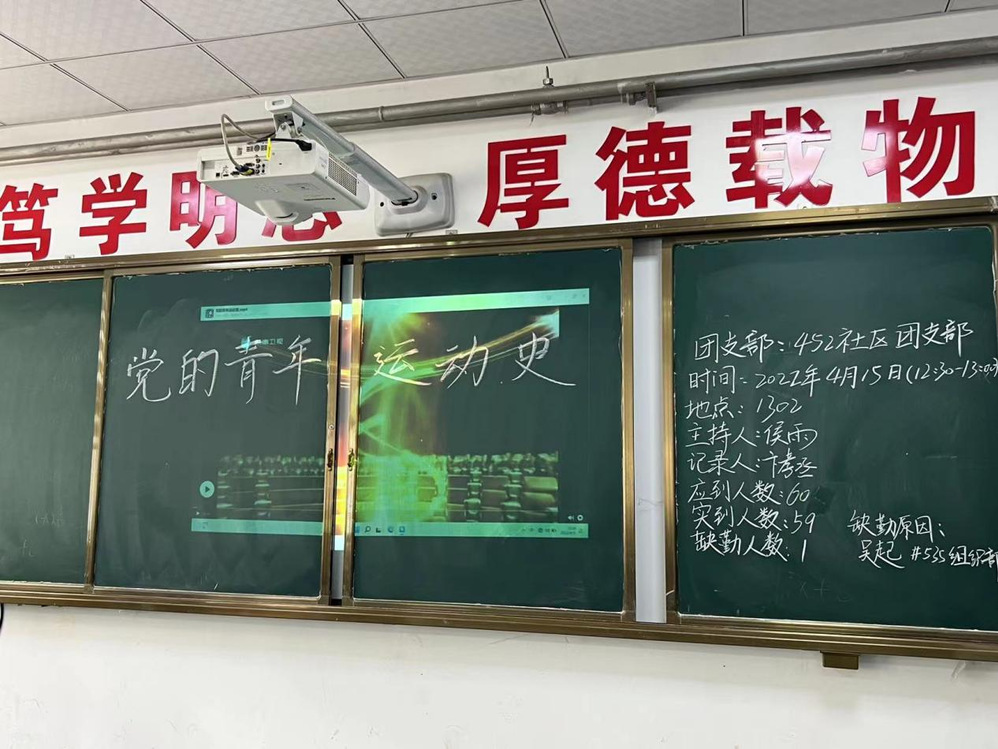 笃学明志
厚德载物
党的青年运动史
团支部：452社区团支部
时间：2022年4月15日(12:30-13:00)
地点：1302
主持人：侯雨
应到人数：60
实到人数：59
缺勤人数：1
缺勤原因：
吴起 #535组织部